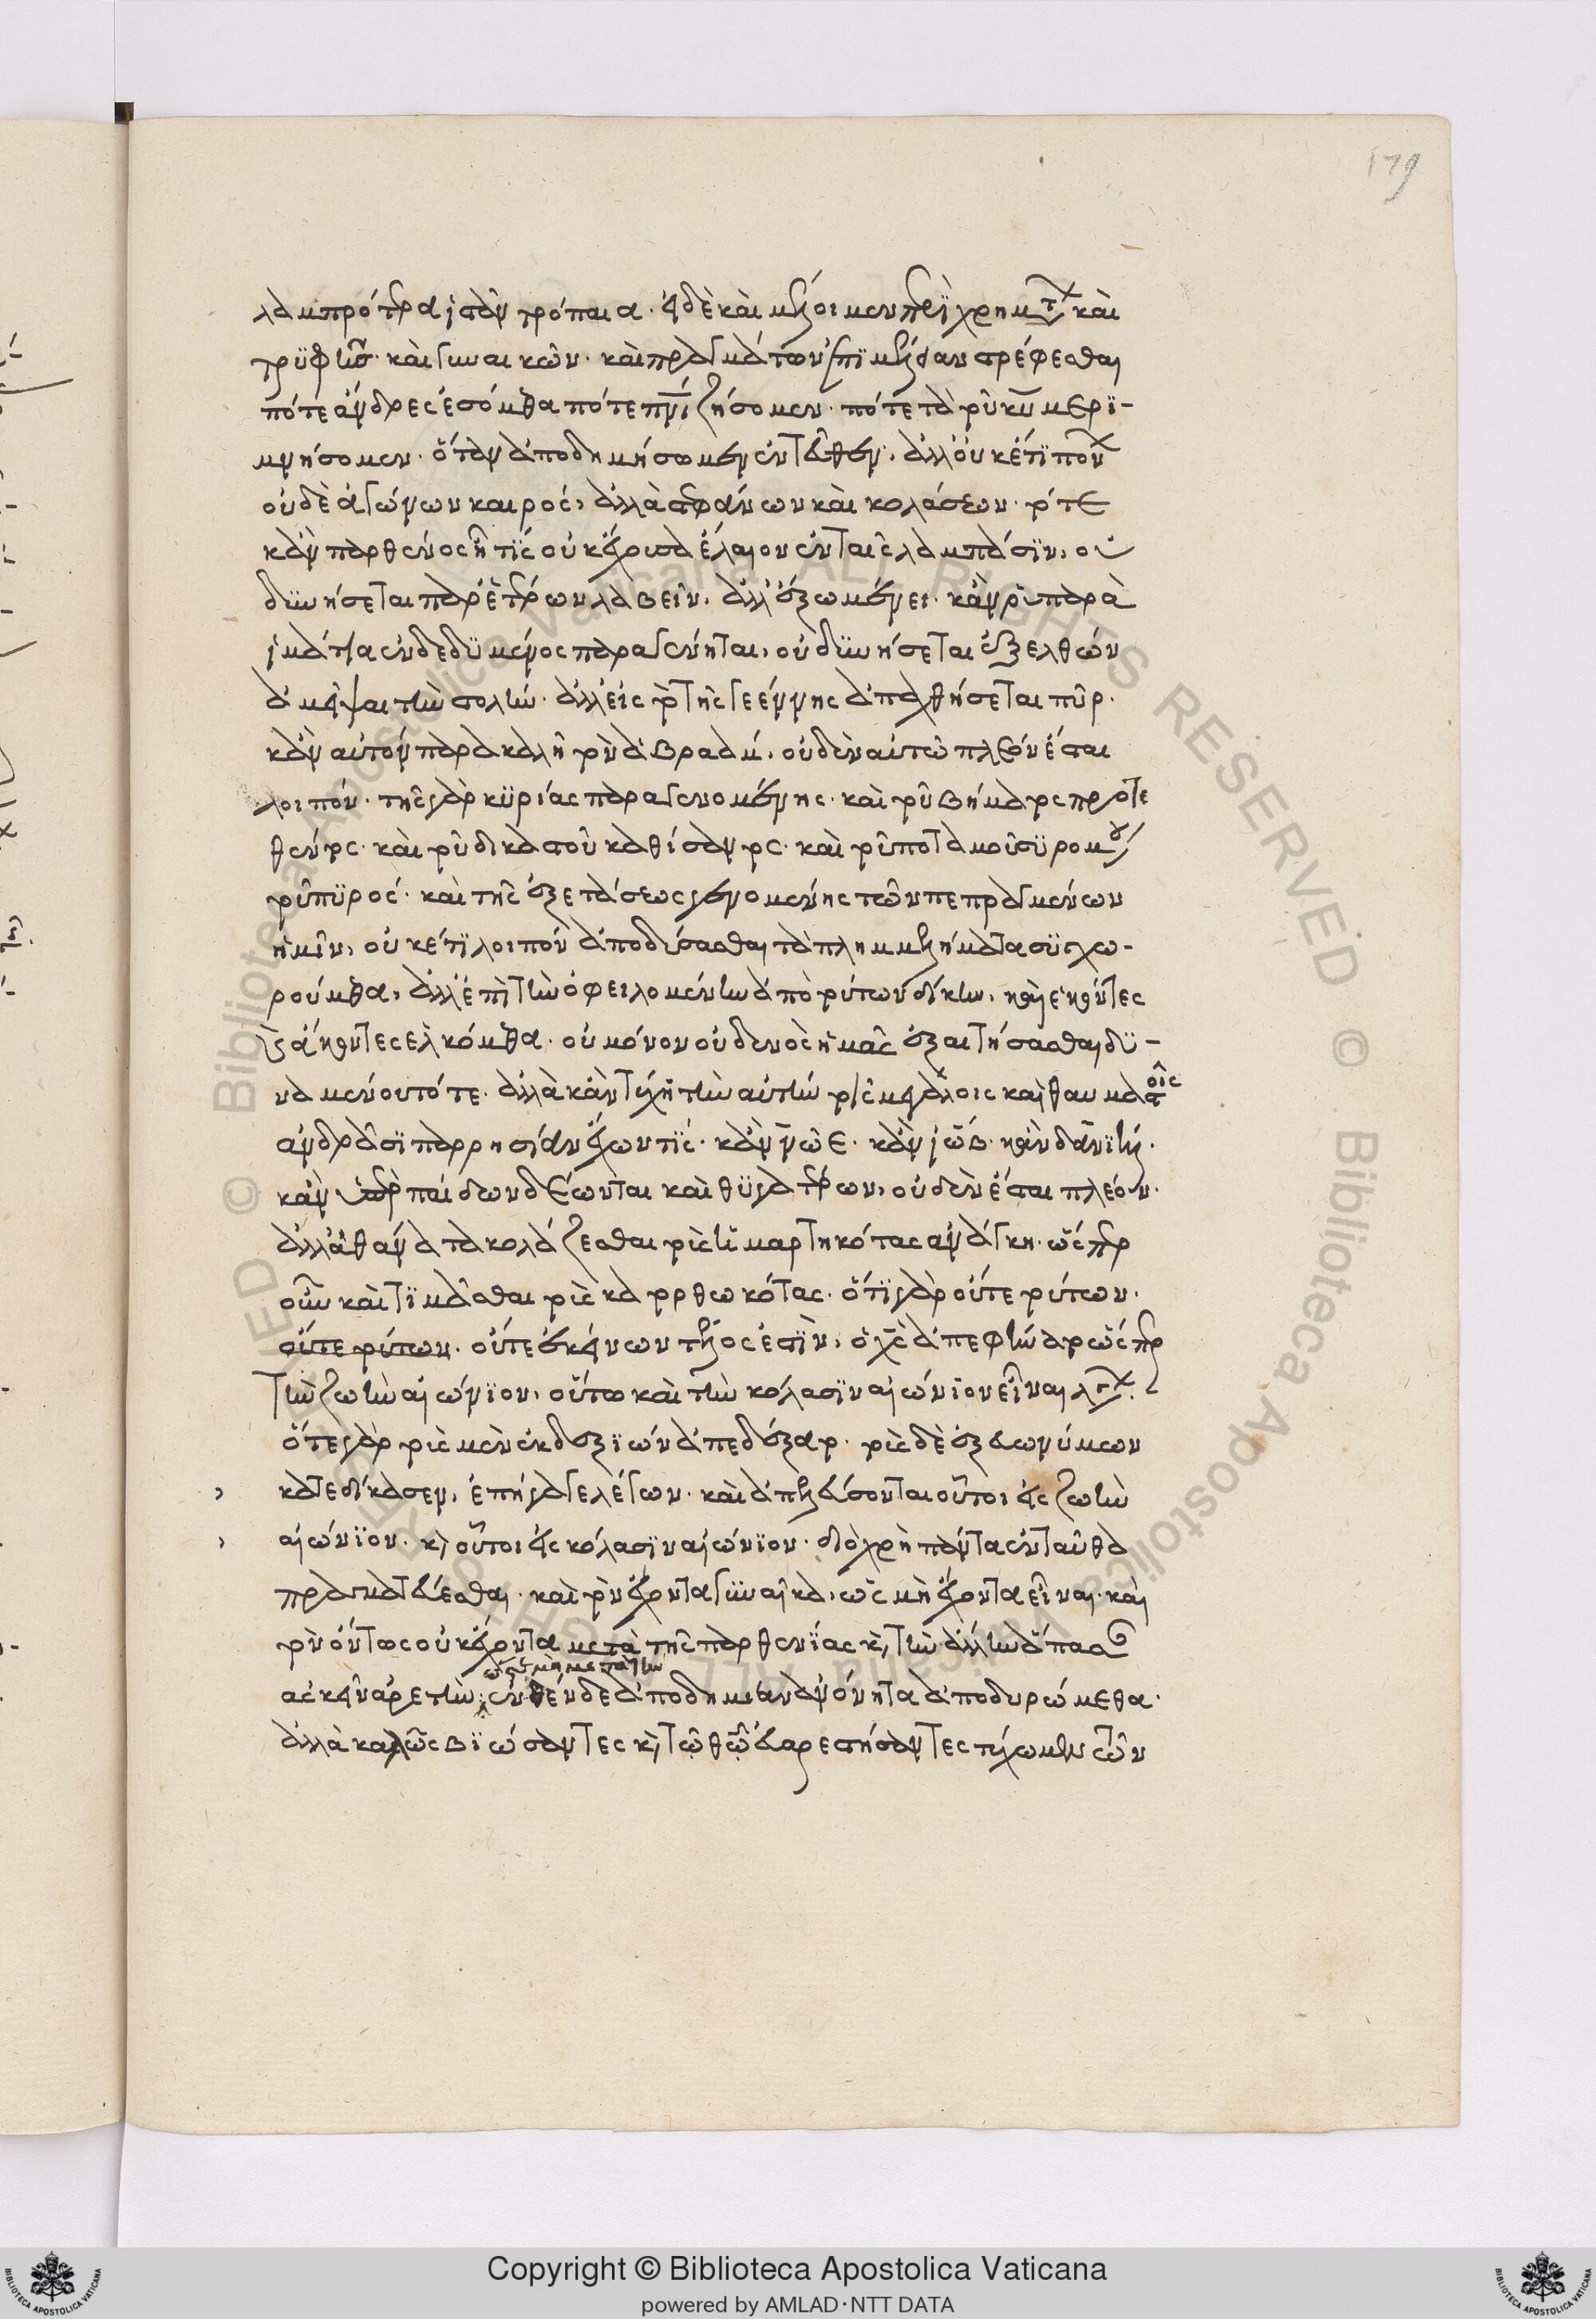 179
λαμπρότερα ἱστᾶν τρόπαια. εἰ δὲ καὶ μέλλοιμεν περὶ χρημάτων καὶ
τρυφῆς. καὶ γυναικῶν. καὶ πραγμάτων ἐπιμέλειαν στρέφεσθαι
πότε ἄνδρες ἐσόμεθα πότε πνεύματι ζήσομεν. πότε τὰ τοῦ κυρίου μερι-
μνήσομεν. ὅταν ἀποδημήσωμεν ἐντεῦθεν. ἀλλ' οὐκέτι πόνων
οὐδὲ ἀγώνων καιρός, ἀλλὰ στεφάνων καὶ κολάσεων. τότε
κἂν παρθένος ᾖ τίς οὐκ ἔχουσα ἔλαιον ἐν ταῖς λαμπάσιν, οὐ
δυνήσεται παρ' ἑτέρων λαβεῖν. ἀλλ' ἔξω μένει. κἂν ῥυπαρὰ
ἱμάτια ἐνδεδυμένος παραγένηται, οὐ δυνήσεται ἐξελθὼν
ἀμεῖψαι τὴν στολήν. ἀλλ' εἰς τὸ τῆς γεέννης ἀπαχθήσεται πῦρ.
κἂν αὐτὸν παρακαλῇ τὸν ἀβραάμ, οὐδὲν αὐτῶ πλέον ἔσται
λοιπόν. τῆς γὰρ κυρίας παραγενομένης. καὶ τοῦ βήματος προτε
θέντος. καὶ τοῦ δικαστοῦ καθίσαντος. καὶ τοῦ ποταμοῦ συρομένου
τοῦ πυρός. καὶ τῆς ἐξετάσεως γενομένης τῶν πεπραγμένων
ἡμῖν, οὐκέτι λοιπὸν ἀποδύσασθαι τὰ πλημμελήματα συγχω-
ρούμεθα, ἀλλ' ἐπὶ τὴν ὀφειλομένην ἀπὸ τούτων δίκην, καὶ ἑκόντες
καὶ ἄκοντες ἑλκόμεθα. οὐ μόνον οὐδενὸς ἡμᾶς ἐξαιτήσασθαι δυ-
ναμένου τότε. ἀλλὰ κἂν τύχῃ τὴν αὐτὴν τοῖς μεγάλοις καὶ θαυμαστοῖς
ἀνδράσι παρρησίαν ἔχων τίς. κἂν νῶε. κἂν ἰώβ. κἂν δανιήλ.
κἂν ὑπὲρ παίδων δέωνται καὶ θυγατέρων, οὐδὲν ἔσται πλέον.
ἀλλ' ἀθάνατα κολάζεσθαι τοὺς ἡμαρτηκότας ἀνάγκη. ὥσπερ
οὖν καὶ τιμᾶσθαι τοὺς κατορθωκότας. ὅτι γὰρ οὔτε τούτων.
οὔτε τούτων. οὔτε ἐκείνων τέλος ἐστὶν, ὁ χριστὸς ἀπεφήνατο ὥσπερ
τὴν ζωὴν αἰώνιον, οὕτω καὶ τὴν κόλασιν αἰώνιον εἶναι λέγων.
ὅτε γὰρ τοὺς μὲν ἐκ δεξιῶν ἀπεδέξατο. τοὺς δὲ ἐξ εὐωνύμων
κατεδίκασεν, ἐπήγαγε λέγων. καὶ ἀπελεύσονται οὗτοι εἰς ζωὴν
αἰώνιον. καὶ οὗτοι εἰς κόλασιν αἰώνιον. διὸ χρὴ πάντα ἐνταῦθα
πραγματεύεσθαι. καὶ τὸν ἔχοντα γυναῖκα, ὡς μὴ ἔχοντα εἶναι. καὶ
τὸν ὄντως οὐκ ἔχοντα μετὰ τῆς παρθενίας καὶ τὴν ἄλλην ἅπασαν
ἀσκεῖν ἀρετὴν, ἐνθένδε ἀποδημίαν ἀνόνητα ἀποδυρώμεθα.
ὥστε μὴ μετὰ τὴν
ἀλλὰ καλῶς βιώσαντες καὶ τῶ θεῶ εὐαρεστήσαντες τύχωμεν τῶν
Copyright © Biblioteca Apostolica Vaticana
powered by AMLAD·NTT DATA